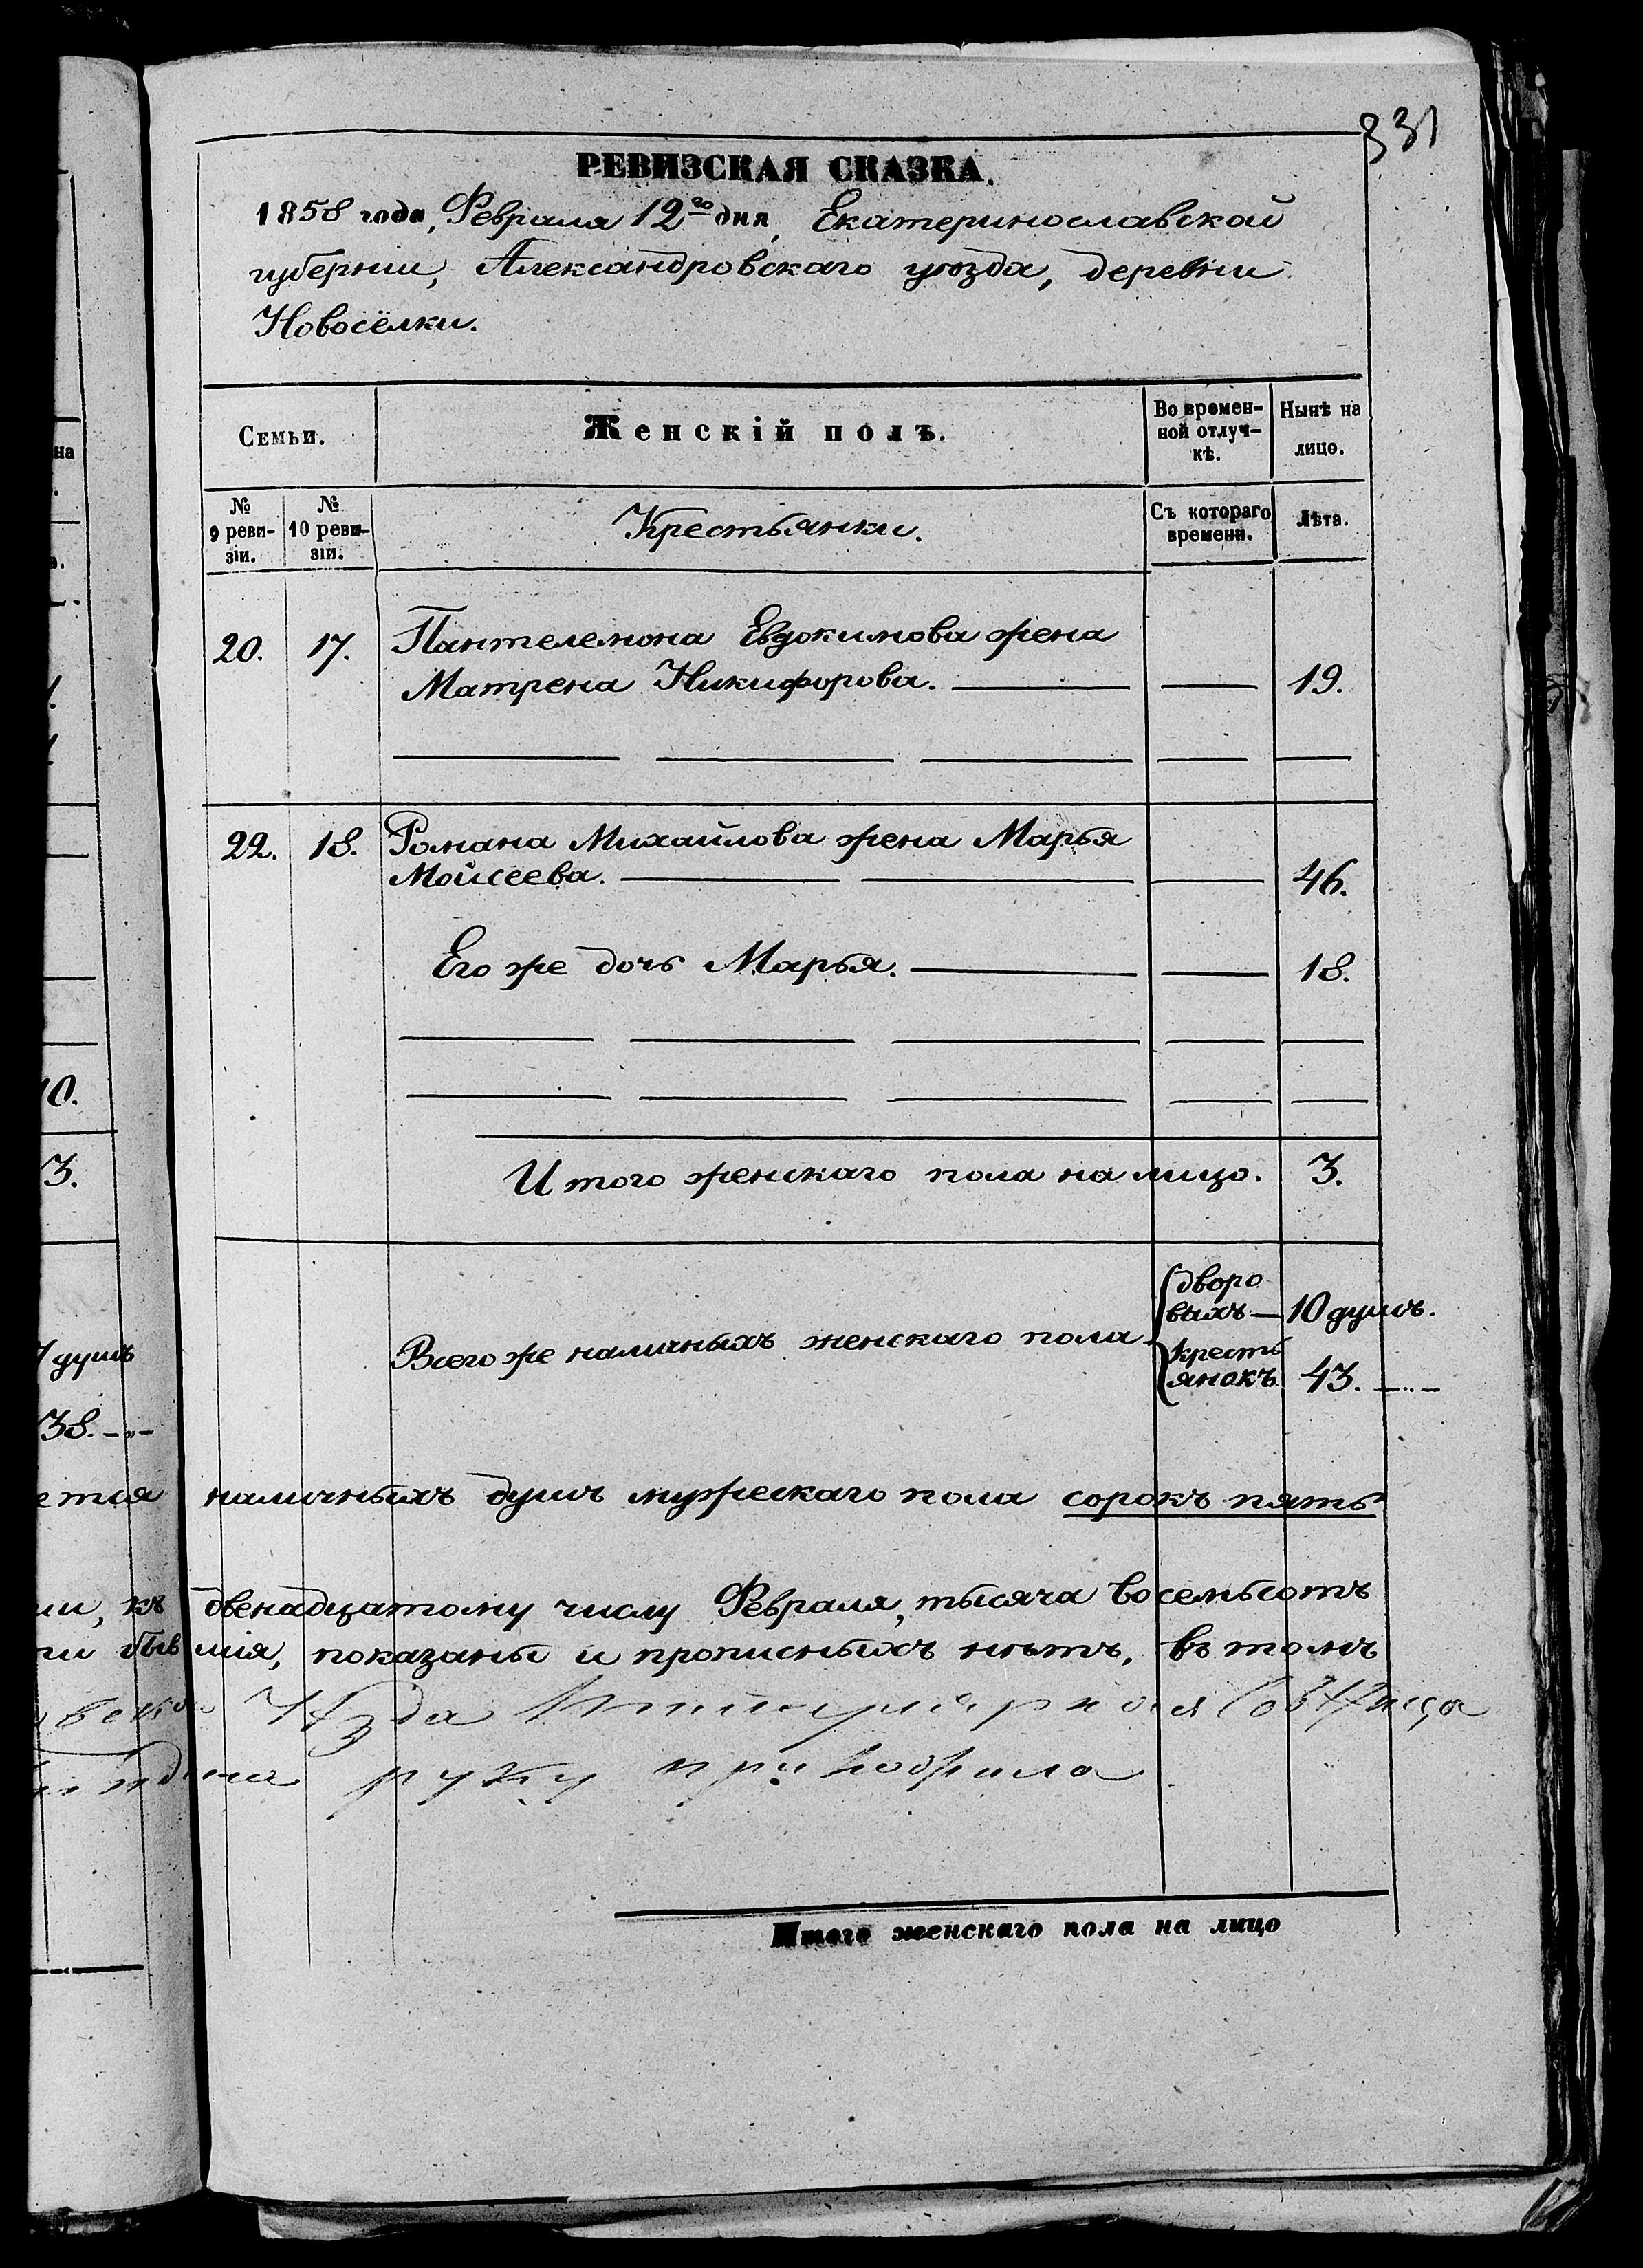 331
РЕВИЗСКАЯ СКАЗКА.
1858 года, Февраля 12го дня, Екатеринославской
губернии, Александровскаго уѣзда, деревни
Новосёлки.
Семьи.
Женскій полъ.
Во времен-
ной отлуч-
кѣ.
Нынѣ на
лицо.
№
9 реви-
зіи.
№
10 реви-
зіи.
Крестьянки.
Съ котораго
времени.
Лѣта.
20. 17. Пантелемона Евдокимова жена
Матрена Никифорова. 19.
22. 18. Романа Михайлова жена Марья
Моисеева. 46.
Его же дочь Марья. 18.
Итого женскаго пола на лицо. 3.
Всего же наличныхъ женскаго пола
дворо
выхъ — 10 душъ.
кресть
янокъ 43. —„—
наличныхъ душъ мужескаго пола сорокъ пять
двенадцатому числу Февраля, тысяча восемьсотъ
мія, показаны и прописныхъ нѣтъ, въ томъ
руку приложила
Итого женскаго пола на лицо
на
10.
3.
душъ
38. —„—
къ